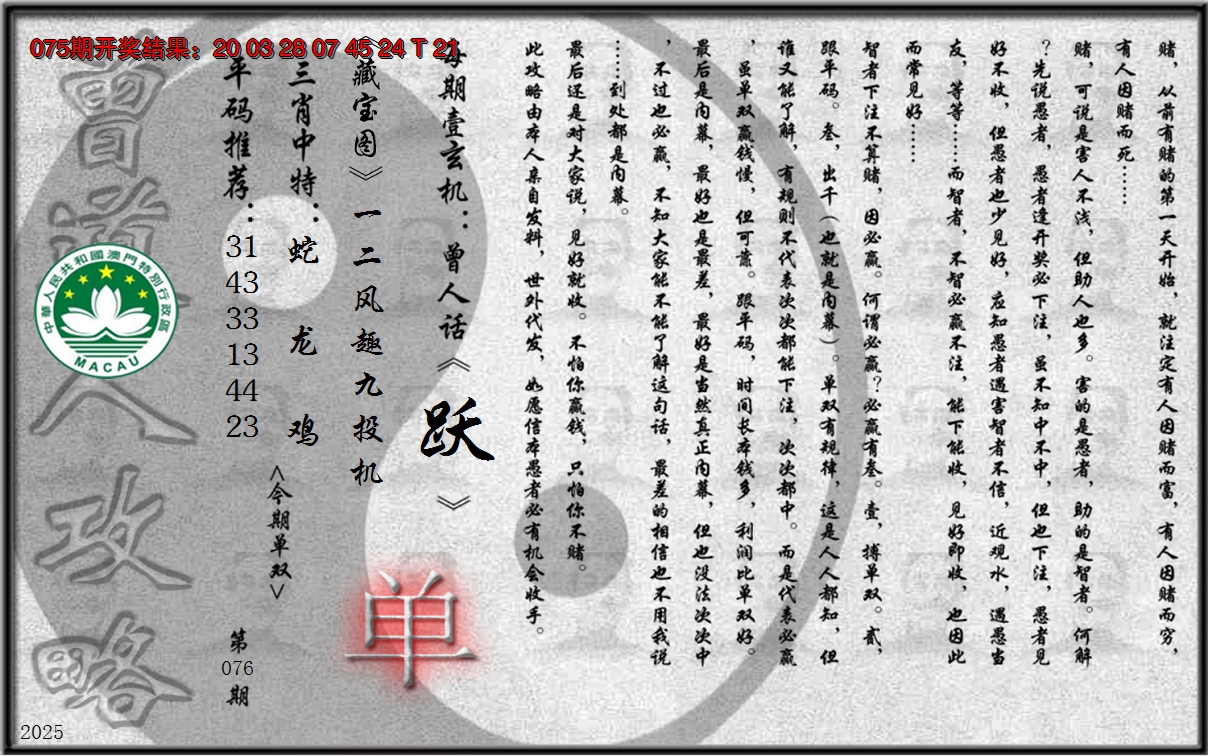 075期开奖结果：20 03 28 07 45 24 T 21
赌，从前有赌的第一天开始，就注定有人因赌而富，有人因赌而穷，
有人因赌而死……
赌，可说是害人不浅，但助人也多。害的是愚者，助的是智者。何解
？先说愚者，愚者逢开奖必下注，虽不知中不中，但也下注，愚者见
好不收，但愚者也少见好，应知愚者遇害智者不信，近观水，遇愚当
友，等等……而智者，不智必赢不注，能下能收，见好即收，也因此
而常见好……
智者下注不算赌，因必赢。何谓必赢？必赢有叁。壹，搏单双。贰，
跟平码。叁，出千（也就是内幕）。单双有规律，这是人人都知，但
谁又能了解，有规则不代表次次都能下注，次次都中。而是代表必赢
，虽单双赢钱慢，但可靠。跟平码，时间长本钱多，利润比单双好。
最后是内幕，最好也是最差，最好是当然真正内幕，但也没法次次中
，不过也必赢，不知大家能不能了解这句话，最差的相信也不用我说
……到处都是内幕。
最后还是对大家说，见好就收。不怕你赢钱，只怕你不赌。
此攻略由本人亲自发料，世外代发，如愿信本愚者必有机会收手。
每期壹玄机：曾人话《跃》
《藏宝图》一二风趣九投机
三肖中特：蛇 龙 鸡
平码推荐：31 43 33 13 44 23
<今期单双>
单
第076期
曾道人攻略
中華人民共和國澳門特別行政區
MACAU
2025